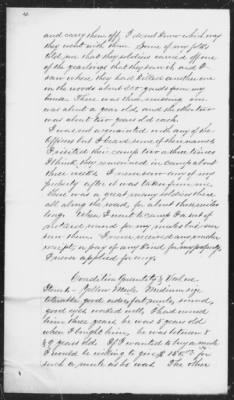 and carry them off, I do not know which way
they went with them. Some of my folks
told me that they soldiers carried off one
of the yearlings that they caught, and I
saw where they had killed another one
in the woods about 200 yards from my
house. There was three, missing one
was about a year old, and the other two
was about two years old each.
I was not acquainted with any of the
officers but I heard some of their names
I visited their camp two or three times
I think, they remained in camp about
three weeks. I never saw any of my
property after it was taken from me.
There was a great many soldiers there
all along the road, for about three miles
long. When I went to camp I a sort of
looked round for my mules but never
seen them. I never received any voucher
receipt, or pay of any kind for my property
I never applied for any.
Condition Quantity & Value.
Item 1 - Yellow Mule. Medium size
tolerable good order, fast mule, sound,
good eyes worked well. I had owned
him three years, he was 5 years old
when I bought him, he was between 8
& 9 years old. If I wanted to buy a mule
I would be willing to give $ 150.00 for
such a mule as he was. The other